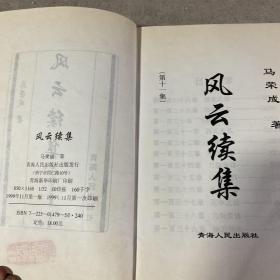 风云续集
马荣成 著
青海人民出版社出版发行
青海新华印刷厂印刷
850×1168 1/32 80印张 160千字
1999年11月第一版 1999年11月第一次印刷
ISBN 7-225-01479-50·240
定价:18.00元
马荣成 著
(第十一集)
风云续集
青海人民出版社